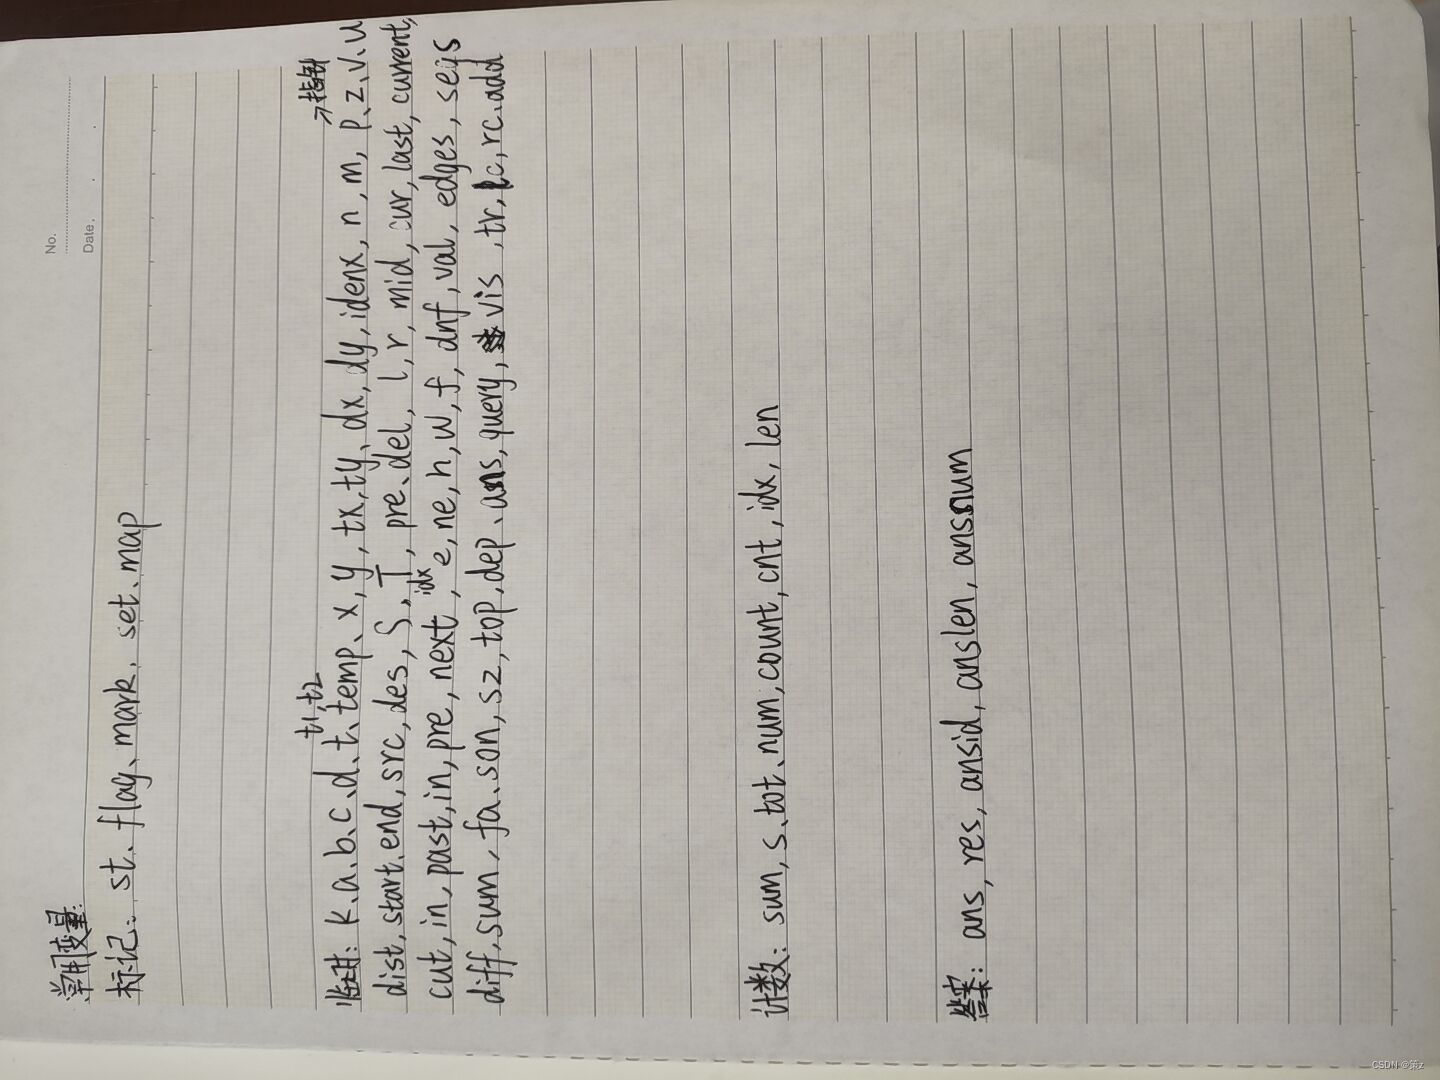 No.
Date.
常用变量:
标记: st、flag、mark、set、map
t1,t2
→指针
临时: k、a、b、c、d、t、temp、x,y,tx,ty、dx,dy,idenx,n,m,p、z、v、u
dist,start、end,src,des,S,T,pre、del,l,r,mid,cur,last,current,
idx
cut,in,past,in,pre,next,e,ne,h,w,f,dnf,val,edges,segs
diff,sum,fa、son,sz,top,dep、ans,query,vis,tr,lc,rc、add
计数: sum,s、tot、num,count,cnt,idx,len
答案: ans,res,ansid,anslen,ansnum
CSDN @策z